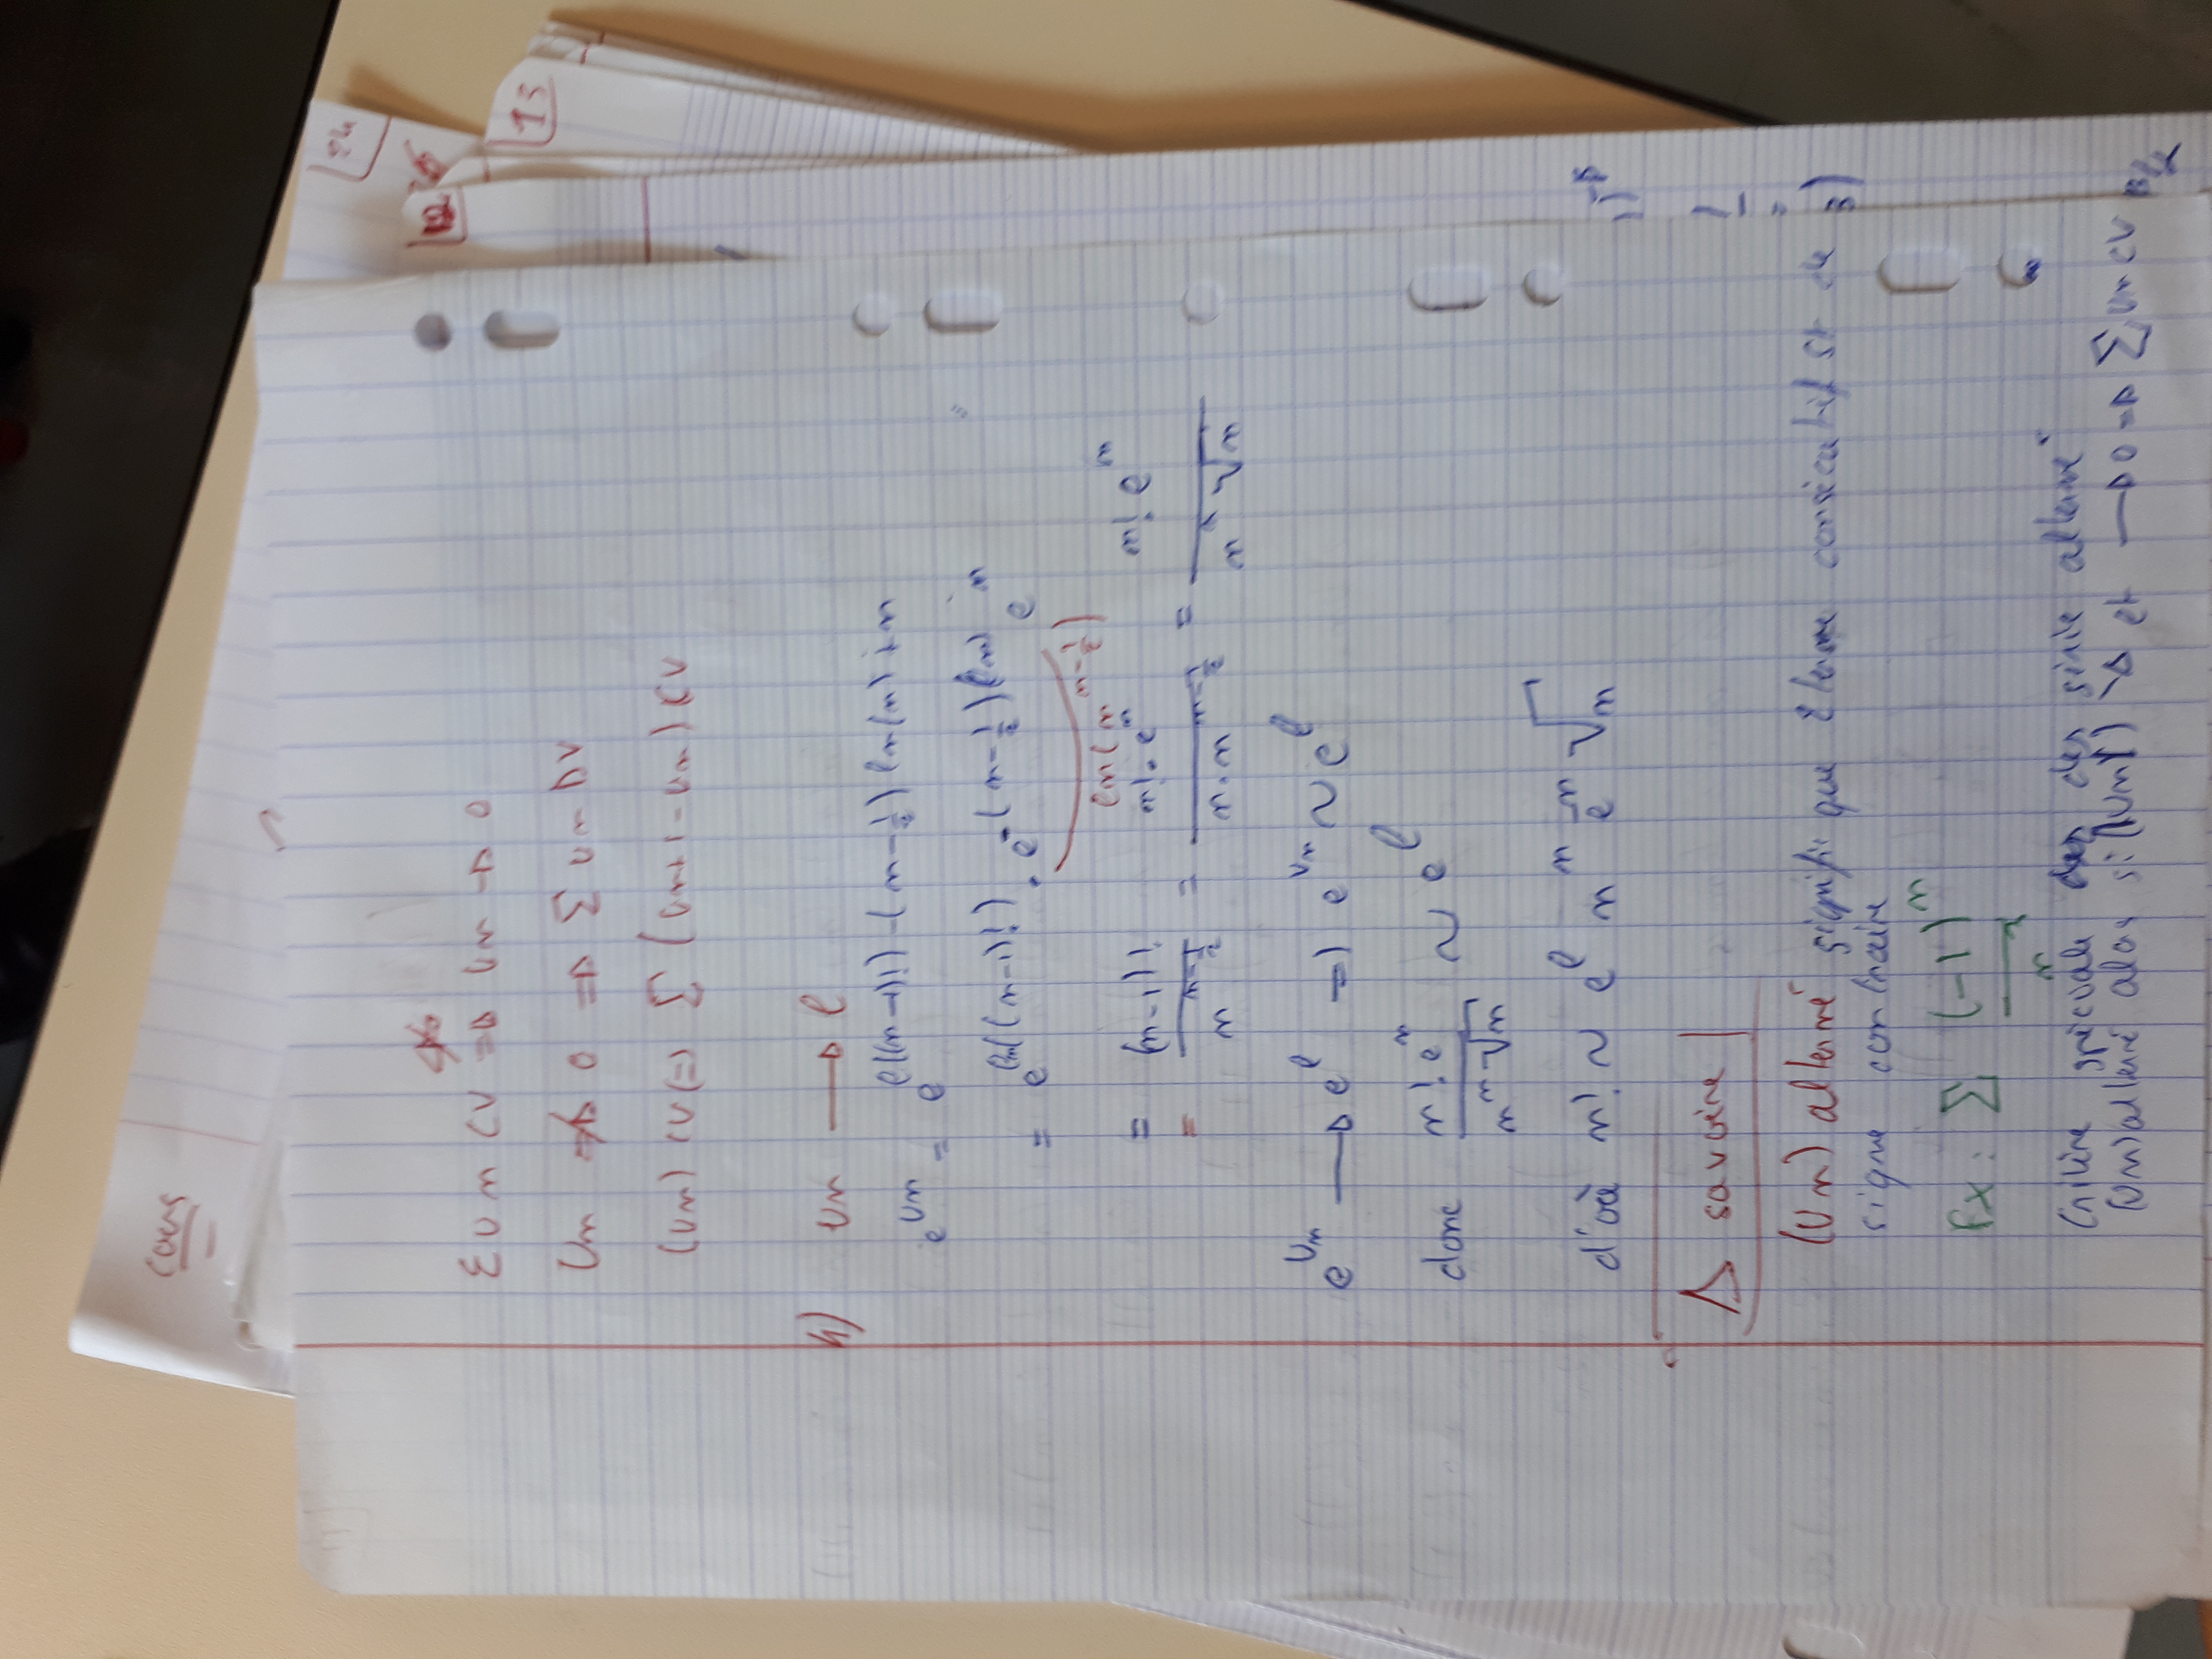 cours
12
13
Σ Un CV ⇒ Un → 0
Un ↛ 0 ⇒ Σ Un DV
(Un) CV (=) Σ (Un+1 - Un) CV
h) Un → l
e^Un = e^(l((n-1)!) - (n - 1/2) ln(n) + n)
= e^(ln((n-1)!)) · e^(-(n - 1/2) ln) e^n
ln(n^(n - 1/2))
= (n-1)! / n^(n - 1/2) = n! · e^n / n·n^(n - 1/2) = n! e^n / n^n √n
e^Un → e^l =) e^Un ~ e^l
donc n! e^n / n^n √n ~ e^l
d'où n! ~ e^l n^n e^-n √n
Δ savoire
(Un) alterné signifie que 2 terme consécutif st de
signe contraire
Ex : Σ (-1)^n / n
Critère spéciale des des série alterné
(Un) alterné alors si (|Un|) ↘ et → 0 ⇒ Σ Un CV